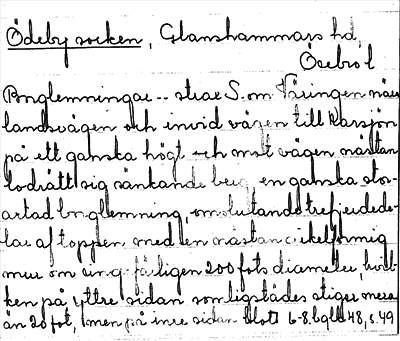 Ödeby socken, Glanshammars hd,
Örebro l
Borglemningar -- strax S. om Väringen nära
landsvägen och invid vägen till Karsjön
på ett ganska högt och mot vägen nästan
lodrätt sig sänkande berg en ganska stor-
artad borglemning, omslutande trefjerdede-
lar af toppen med en nästan cirkelformig
mur om ungefärligen 200 fots diameter, hvil-
ken på yttre sidan somligstädes stiger mera
än 20 fot, men på inre sidan blott 6-8. 48, s. 49